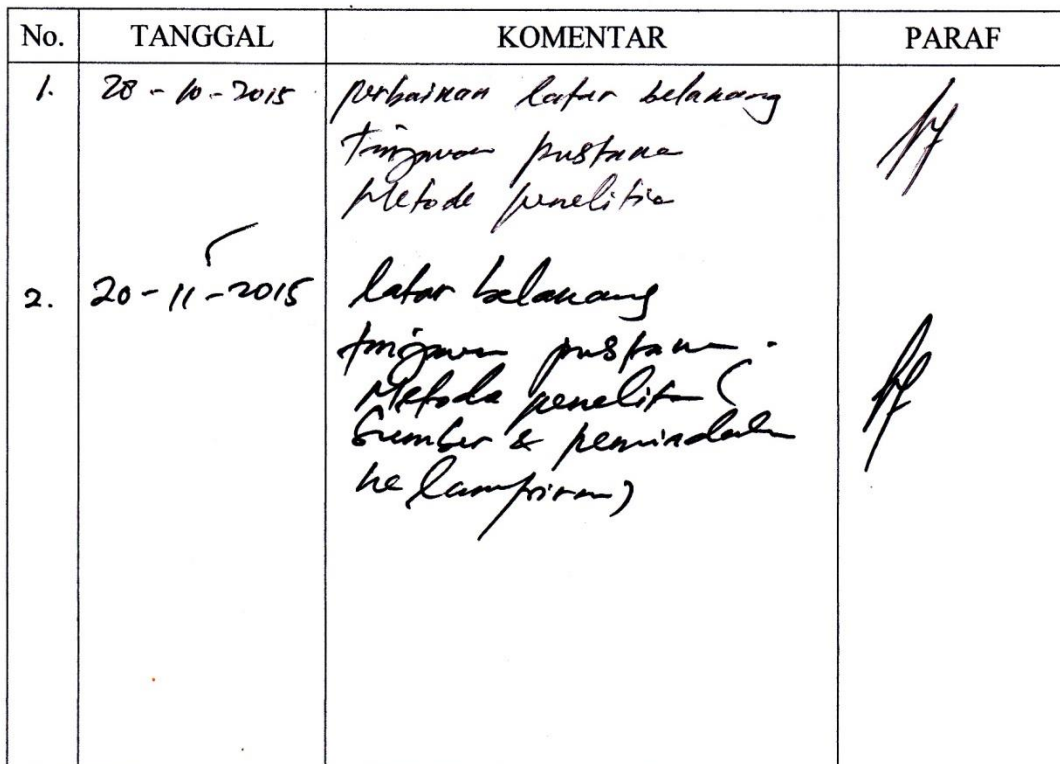 No. TANGGAL KOMENTAR PARAF
1. 28-10-2015 perbaikan latar belakang
Tinjauan pustaka
Metode penelitia
2. 20-11-2015 latar belakang
tinjauan pustaka.
Metoda penelitian (
Sumber & pemindahan
ke lampiran)